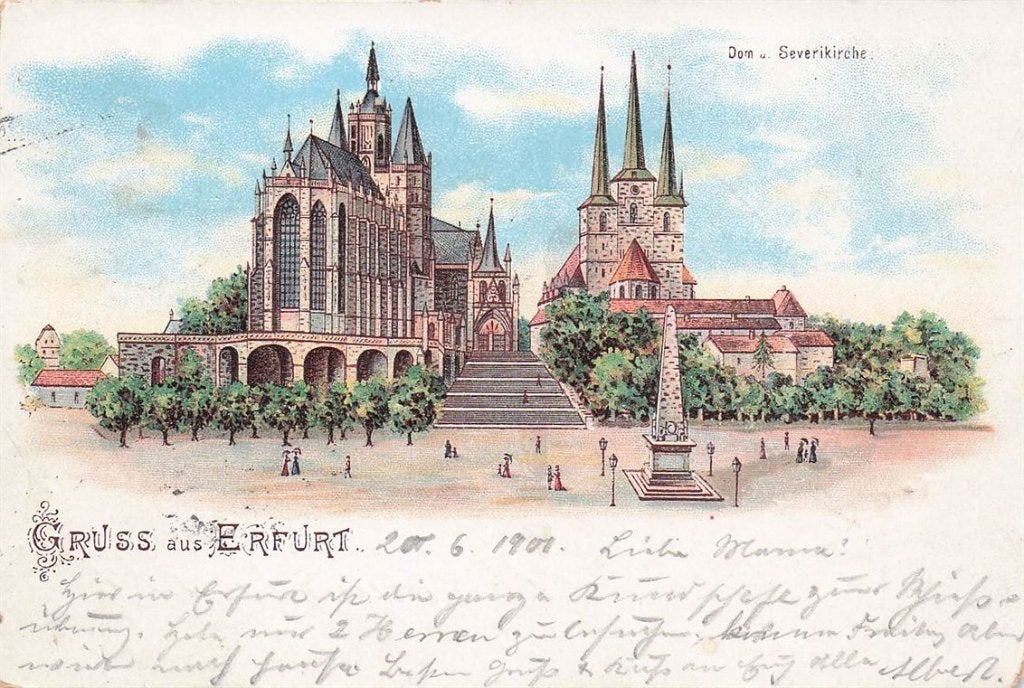 Dom u. Severikirche.
GRUSS aus ERFURT. 20. 6. 1901. Liebe Mama!
Hier in Erfurt ist die ganze Kundschaft zur Schieß-
übung. Habe nur 2 Herren zu besuchen. komme Freitag Abend
wieder nach Hause. Besten Gruß & Kuß an Euch Alle Albert.